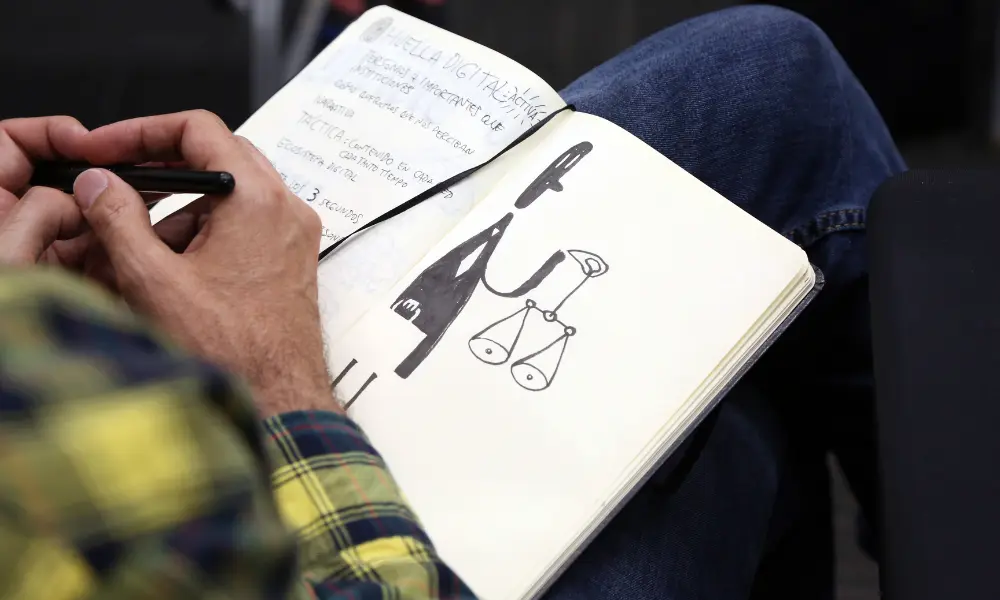 HUELLA DIGITAL: ACTIVA
PERSONAS IMPORTANTES QUE
INSTITUCIONES
COMO QUEREMOS QUE NOS PERCIBAN
NARRATIVA
TÁCTICA: CONTENIDO EN CADA RED
CADA TANTO TIEMPO
ECOSISTEMA DIGITAL
3 SEGUNDOS